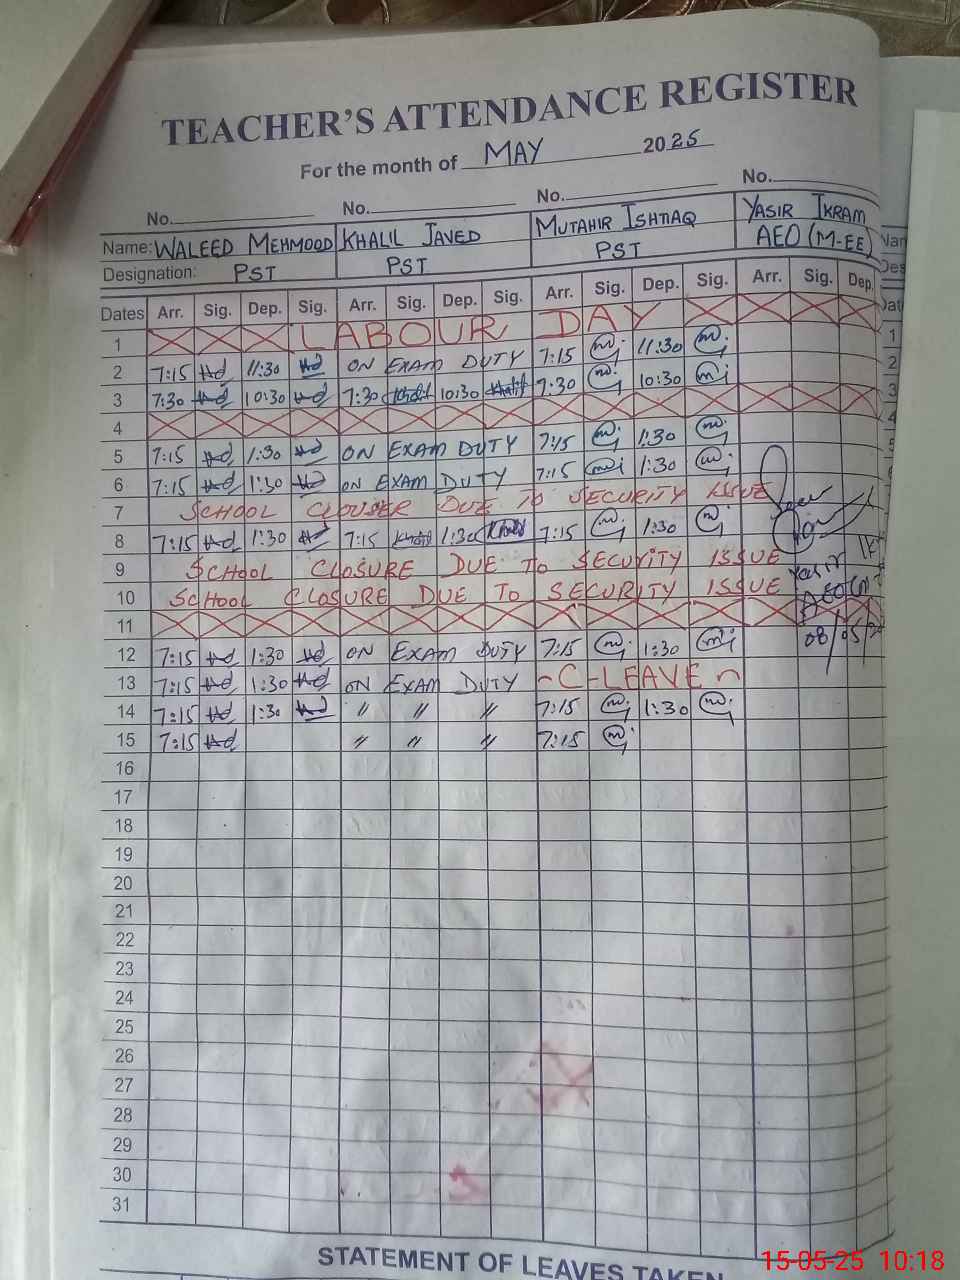 TEACHER'S ATTENDANCE REGISTER
For the month of MAY 2025
No. No. No. No.
Name: WALEED MEHMOOD KHALIL JAVED MUTAHIR ISHTIAQ YASIR IKRAM
Designation: PST PST PST AEO (M-EE)
Dates Arr. Sig. Dep. Sig. Arr. Sig. Dep. Sig. Arr. Sig. Dep. Sig. Arr. Sig. Dep.
1 LABOUR DAY
2 7:15 11:30 ON EXAM DUTY 7:15 11:30
3 7:30 10:30 7:30 Khalil 10:30 Khalil 7:30 10:30
4
5 7:15 1:30 ON EXAM DUTY 7:15 1:30
6 7:15 1:30 ON EXAM DUTY 7:15 1:30
7 SCHOOL CLOUSER DUE TO SECURITY ISSUE
8 7:15 1:30 7:15 Khalil 1:30 7:15 1:30
9 SCHOOL CLOSURE DUE TO SECURITY ISSUE
10 SCHOOL CLOSURE DUE TO SECURITY ISSUE
Yasir
AEO
11
12 7:15 1:30 ON EXAM DUTY 7:15 1:30
08/05/
13 7:15 1:30 ON EXAM DUTY ~C-LEAVE~
14 7:15 1:30 〃 〃 〃 7:15 1:30
15 7:15 〃 〃 〃 7:15
16
17
18
19
20
21
22
23
24
25
26
27
28
29
30
31
STATEMENT OF LEAVES TAKEN
15-05-25 10:18